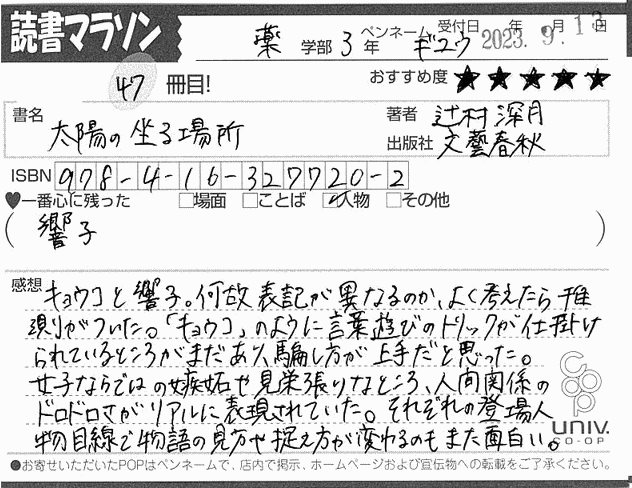 読書マラソン
薬 学部 3 年 ペンネーム ギユウ 受付日 年 月 日
2023. 9. 13
47 冊目!
おすすめ度 ★★★★★
書名 太陽の坐る場所
著者 辻村深月
出版社 文藝春秋
ISBN 978-4-16-327720-2
♥一番心に残った □場面 □ことば ☑人物 □その他
(響子)
感想 キョウコと響子。何故表記が異なるのか、よく考えたら推
測がついた。「キョウコ」のように言葉遊びのトリックが仕掛け
られているところがまだあり、騙し方が上手だと思った。
女子ならではの嫉妬や見栄張りなところ、人間関係の
ドロドロさがリアルに表現されていた。それぞれの登場人
物目線で物語の見方や捉え方が変わるのもまた面白い。
coop
univ.
CO-OP
●お寄せいただいたPOPはペンネームで、店内で掲示、ホームページおよび宣伝物への転載をご了承ください。